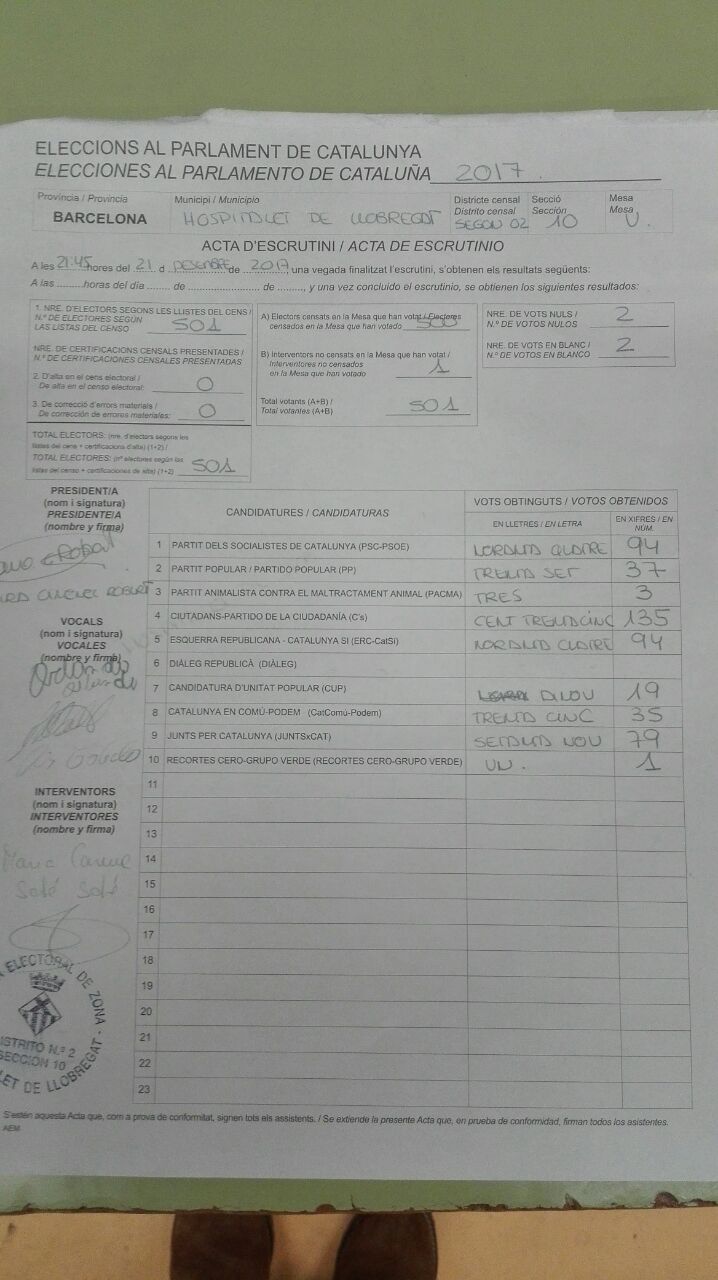 ELECCIONS AL PARLAMENT DE CATALUNYA
ELECCIONES AL PARLAMENTO DE CATALUÑA 2017.
Provincia / Provincia
BARCELONA
Municipi / Municipio
HOSPITALET DE LLOBREGAT
Districte censal
Distrito censal
SEGON 02
Secció
Sección
10
Mesa
Mesa
U.
ACTA D'ESCRUTINI / ACTA DE ESCRUTINIO
A les 21:45 hores del 21 d DESEMBRE de 2017, una vegada finalitzat l'escrutini, s'obtenen els resultats següents:
A las ........ horas del día ........ de ........ de ........, y una vez concluido el escrutinio, se obtienen los siguientes resultados:
1. NRE. D'ELECTORS SEGONS LES LLISTES DEL CENS /
N.º DE ELECTORES SEGÚN
LAS LISTAS DEL CENSO 501
NRE. DE CERTIFICACIONS CENSALS PRESENTADES /
N.º DE CERTIFICACIONES CENSALES PRESENTADAS
2. D'alta en el cens electoral /
De alta en el censo electoral: 0
3. De correcció d'errors materials /
De corrección de errores materiales: 0
TOTAL ELECTORS: (nre. d'electors segons les
llistes del cens + certificacions d'alta) (1+2) /
TOTAL ELECTORES: (nº electores según las
listas del censo + certificaciones de alta) (1+2) 501
A) Electors censats en la Mesa que han votat / Electores
censados en la Mesa que han votado 500
B) Interventors no censats en la Mesa que han votat /
Interventores no censados
en la Mesa que han votado 1
Total votants (A+B) /
Total votantes (A+B) 501
NRE. DE VOTS NULS /
N.º DE VOTOS NULOS 2
NRE. DE VOTS EN BLANC /
N.º DE VOTOS EN BLANCO 2
PRESIDENT/A
(nom i signatura)
PRESIDENTE/A
(nombre y firma)
ROBERT
VOCALS
(nom i signatura)
VOCALES
(nombre y firma)
INTERVENTORS
(nom i signatura)
INTERVENTORES
(nombre y firma)
Maria Carme
Solé Solé
CANDIDATURES / CANDIDATURAS
VOTS OBTINGUTS / VOTOS OBTENIDOS
EN LLETRES / EN LETRA
EN XIFRES / EN NÚM.
1 PARTIT DELS SOCIALISTES DE CATALUNYA (PSC-PSOE) NORANTA QUATRE 94
2 PARTIT POPULAR / PARTIDO POPULAR (PP) TRENTA SET 37
3 PARTIT ANIMALISTA CONTRA EL MALTRACTAMENT ANIMAL (PACMA) TRES 3
4 CIUTADANS-PARTIDO DE LA CIUDADANÍA (C's) CENT TRENTACINC 135
5 ESQUERRA REPUBLICANA - CATALUNYA SI (ERC-CatSi) NORANTA CUATRE 94
6 DIÀLEG REPUBLICÀ (DIÀLEG)
7 CANDIDATURA D'UNITAT POPULAR (CUP) DINOU 19
8 CATALUNYA EN COMÚ-PODEM (CatComú-Podem) TRENTA CINC 35
9 JUNTS PER CATALUNYA (JUNTSxCAT) SETANTA NOU 79
10 RECORTES CERO-GRUPO VERDE (RECORTES CERO-GRUPO VERDE) UN. 1
11
12
13
14
15
16
17
18
19
20
21
22
23
ELECTORAL DE ZONA
DISTRITO N.º 2
SECCION 10
LET DE LLOBREGAT
S'estén aquesta Acta que, com a prova de conformitat, signen tots els assistents. / Se extiende la presente Acta que, en prueba de conformidad, firman todos los asistentes.
AEM